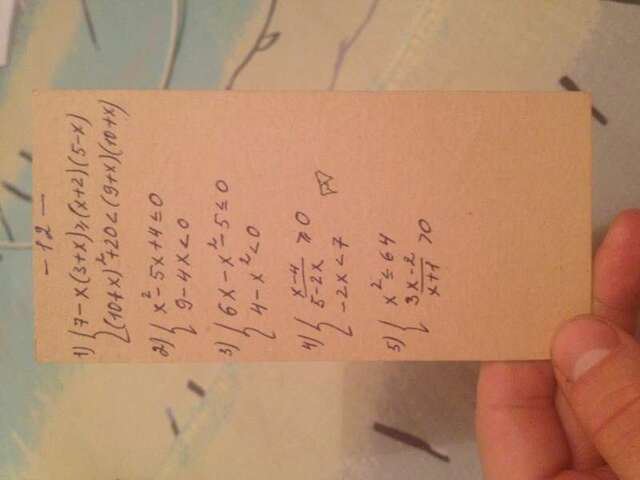 - 12 -
1) { 7 - x(3+x) ≥ (x+2)(5-x)
(10+x)² + 20 < (9+x)(10+x)
2) { x² - 5x + 4 ≤ 0
9 - 4x < 0
3) { 6x - x² - 5 ≤ 0
4 - x² < 0
4) { x-4 / 5-2x ≥ 0
-2x < 7
5) { x² ≤ 64
3x-2 / x+1 > 0